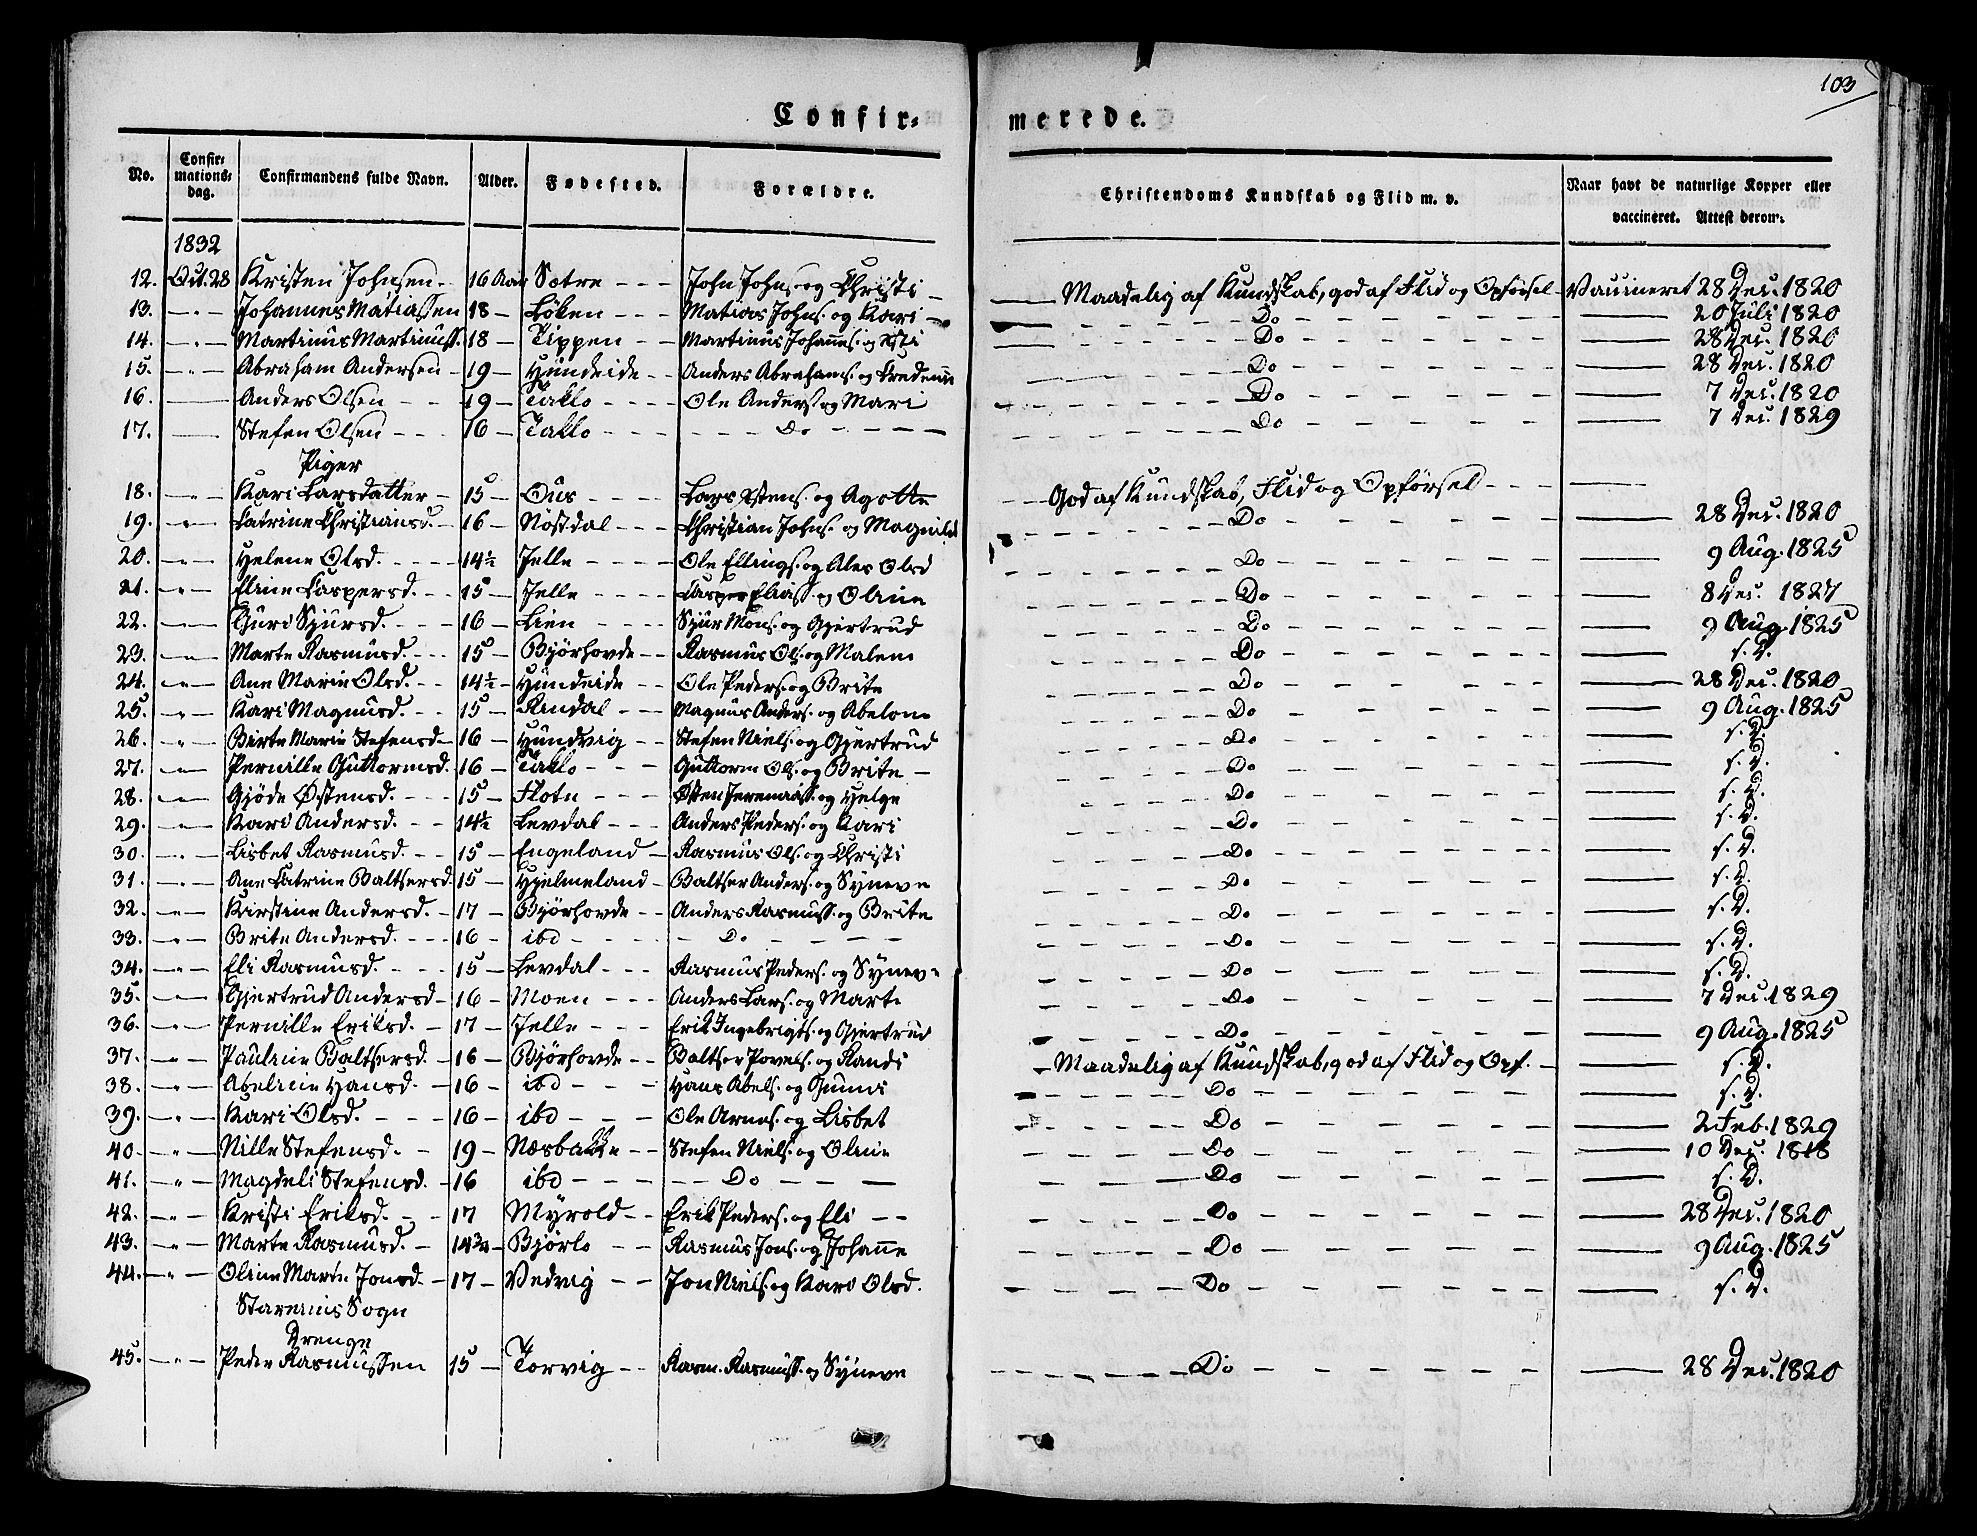 103
Confir=
merede.
No. Confir= mations= dag. Confirmandens fulde Navn. Alder. Fødested. Forældre. Christendoms Kundskab og Flid m. v. Naar havt de naturlige Kopper eller vaccineret. Attest derom.
1832
12. Oct. 28 Kristen Johnsen 16 Aar Sætre John Johns. og Christi Maadelig af Kundskab, god af Flid og Opførsel Vaccineret 28 Dec. 1820
13. Johannes Matiassen 18 Løken Matias Johns. og Kari Do 20 Juli 1820
14. Martinus Martinuss. 18 Tippen Martinus Johanns. og Do 28 Dec. 1820
15. Abraham Andersen 19 Hundeide Anders Abrahams. og Do 28 Dec. 1820
16. Anders Olsen 19 Taklo Ole Anders. og Mari Do 7 Dec. 1820
17. Stefen Olsen 16 Taklo Do Do 7 Dec. 1829
Piger
18. Kari Larsdatter 15 Ous Lars og Agotte God af Kundskab, Flid og Opførsel
19. Catrine Christiansd. 16 Nostdal Christian Johns. og Magnild Do 28 Dec. 1820
20. Helene Olsd. 14½ Jelle Ole Ellings. og Ales Olsd Do 9 Aug. 1825
21. Eline Caspersd. 15 Jelle Casper Eliass. og Oline Do 8 Dec. 1827
22. Guri Sjursd. 16 Lien Sjur Mons. og Gjertrud Do 9 Aug. 1825
23. Marte Rasmusd. 15 Bjørhovde Rasmus Ols. og Malene Do s. D.
24. Ane Marie Olsd. 14½ Hundeide Ole Peders. og Brite Do 28 Dec. 1820
25. Kari Magnusd. 15 Rendal Magnus Anders. og Abelone Do 9 Aug. 1825
26. Birte Marie Stefensd 16 Hundvig Stefen Niels. og Gjertrud Do s. D.
27. Pernille Guttormsd. 16 Taklo Guttorm Ols. og Brite Do s. D.
28. Gjøde Østensd. 15 Flote Østen Jeremiass. og Helge Do s. D.
29. Kari Andersd. 14½ Levdal Anders Peders. og Kari Do s. D.
30. Lisbet Rasmusd. 15 Engeland Rasmus Ols. og Christi Do s. D.
31. Ane Catrine Baltsersd. 15 Hjelmeland Baltser Anders. og Syneve Do s. D.
32. Kirstine Andersd. 17 Bjørhovde Anders Rasmuss. og Brite Do s. D.
33. Brite Andersd. 16 ibd Do Do s. D.
34. Eli Rasmusd. 15 Levdal Rasmus Peders. og Syneve Do s. D.
35. Gjertrud Andersd 16 Moen Anders Lars. og Marte Do 7 Dec. 1829
36. Pernille Eriksd. 17 Jelle Erik Ingebrigts. og Gjertrud Do 9 Aug. 1825
37. Pauline Baltsersd. 16 Bjørhovde Baltser Povels. og Randi Maadelig af Kundskab, god af Flid og Opf. s. D.
38. Abeline Hansd. 16 ibd Hans Abels. og Gunni Do s. D.
39. Kari Olsd. 16 ibd Ole Arnes. og Lisbet Do 2 Feb. 1829
40 Nille Stefensd. 19 Næsbakke Stefen Niels. og Oline Do 10 Dec. 1818
41. Magdeli Stefensd. 16 ibd Do Do s. D.
42. Kristi Eriksd. 17 Myrold Erik Peders. og Eli Do 28 Dec. 1820
43. Marte Rasmusd. 14¾ Bjørlo Rasmus Jons. og Johanne Do 9 Aug. 1825
44. Oline Marte Jonsd. 17 Vedvig Jon Niels. og Kari Olsd. Do s. D.
Starenus Sogn
Drenge
45. Peder Rasmussen 15 Torvig Rasm. Rasmuss. og Syneve Do 28 Dec. 1820